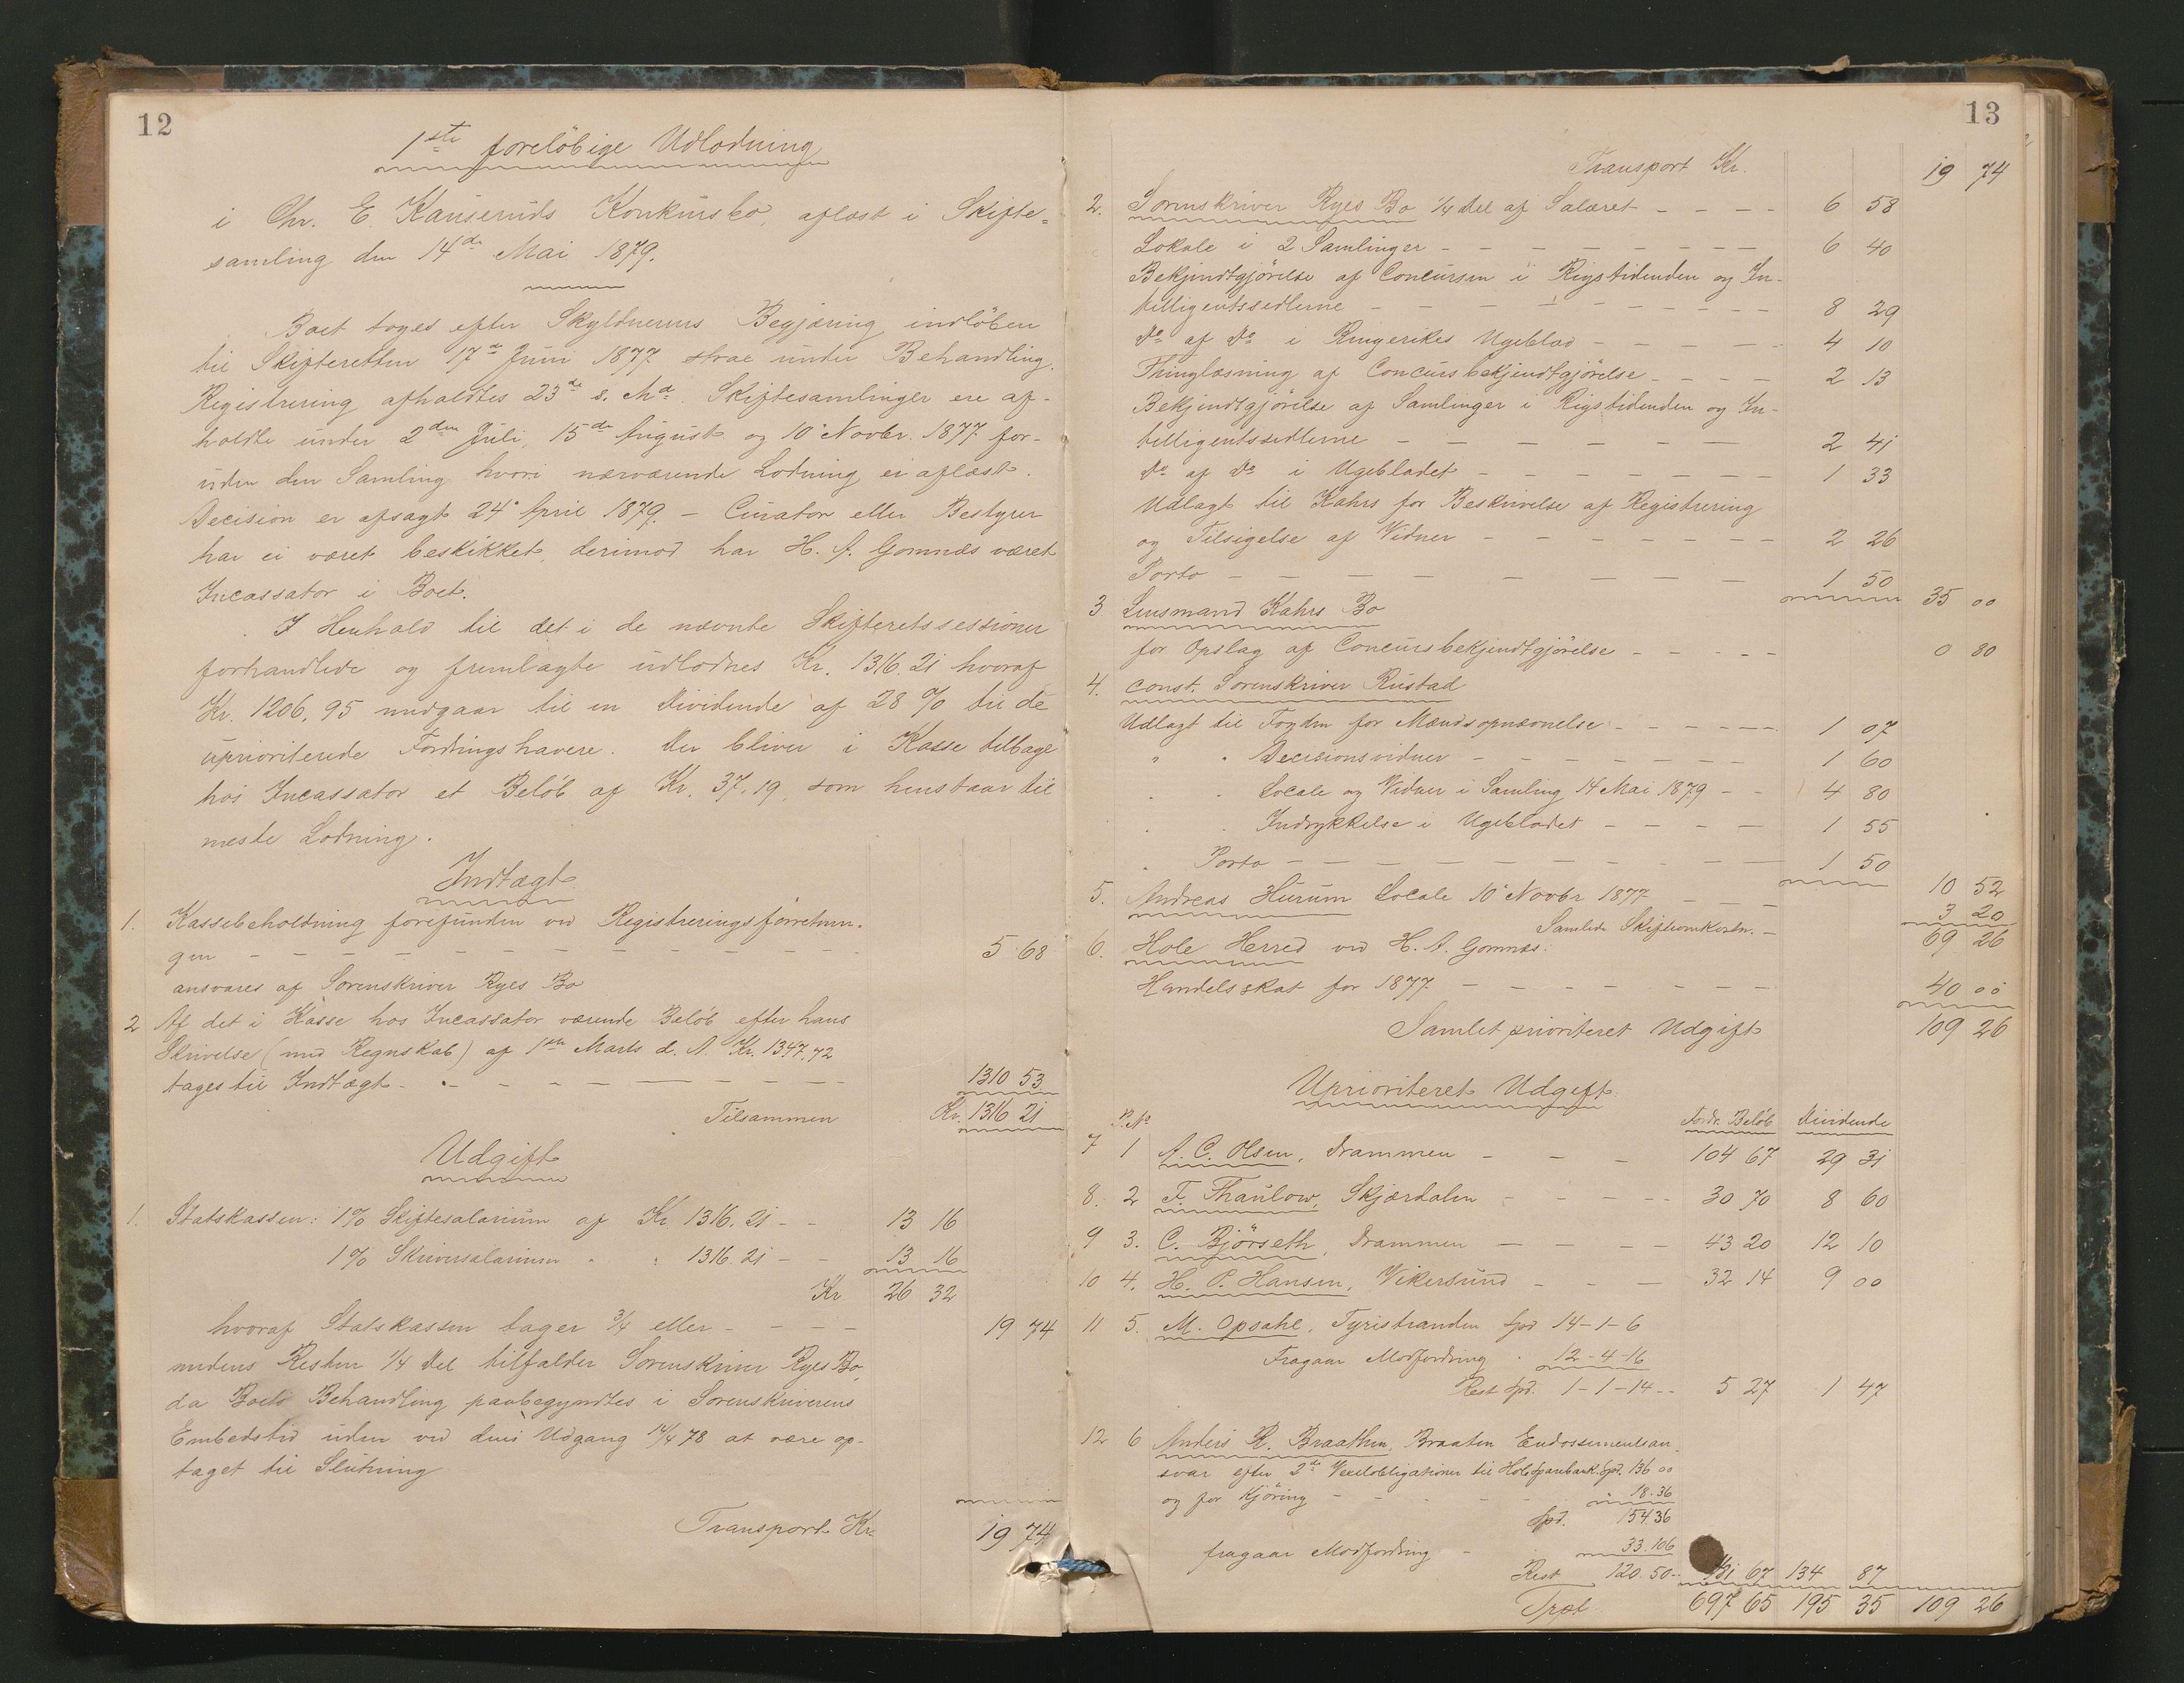 12
1ste foreløbige Udlodning
i Chr. E. Kauseruds Konkursbo, aflæst i Skifte=
samling den 14de Mai 1879.
Boet toges efter Skyldnerens Begjæring, indløben
til Skifteretten 17de Juni 1877 strax under Behandling.
Registrering afholdtes 23de s. Md. Skiftesamlinger ere af-
holdte under 2den Juli, 15de August og 10' Novbr. 1877 for-
uden den Samling hvori nærværende Lodning ei aflæst.
Decision er afsagt 24' April 1879. – Curator eller Bestyrer
har ei været beskikket, derimod har H. A. Gomnæs været
Incassator i Boet.
I Henhold til det i de nævnte Skifteretssessioner
forhandlede og fremlagte udlodnes Kr. 1316.21 hvoraf
Kr. 1206,95 medgaar til en Dividende af 28 % til de
uprioriterede Fordringshavere. Der bliver i Kasse tilbage
hos Incassator et Beløb af Kr. 37,19, som henstaar til
næste Lodning.
Indtægt
1. Kassebeholdning forefunden ved Registreringsforretnin-
gen – – – – – – – – – – – 5 68
ansvares af Sorenskriver Ryes Bo
2 Af det i Kasse hos Incassator værende Beløb efter hans
Skrivelse (med Regnskab) af 1ste Marts d. A. Kr. 1347.72
tages til Indtægt – – – – – – – – – 1310 53
Tilsammen Kr. 1316 21
Udgift
1. Statskassen: 1% Skiftesalarium af Kr. 1316.21 – – 13 16
1% Skriversalarium " " 1316.21 – – 13 16
Kr 26 32
hvoraf Statskassen tager 3/4 eller – – – – 19 74
medens Resten 1/4 Del tilfalder Sorenskriver Ryes Bo,
da Boets Behandling paabegyndtes i Sorenskriverens
Embedstid uden ved dens Udgang 14/4 78 at være op-
taget til Slutning
Transport Kr. 19 74
13
Transport Kr. 19 74
2. Sorenskriver Ryes Bo 1/4 Del af Salæret – – – – 6 58
Lokale i 2 Samlinger – – – – – – – – 6 40
Bekjendtgjørelse af Concursen i Rigstidenden og In-
telligentssedlerne – – – – – – – – – 8 29
Do af Do i Ringerikes Ugeblad – – – – – 4 10
Thinglæsning af Concursbekjendtgjørelse – – – – 2 13
Bekjendtgjørelse af Samlinger i Rigstidenden og In-
telligentssedlerne – – – – – – – 2 41
Do af Do i Ugebladet – – – – – – – 1 33
Udlagt til Kahrs for Beskrivelse af Registrering
og Tilsigelse af Vidner – – – – – – – 2 26
Porto – – – – – – – – – 1 50 35 00
3 Lensmand Kahrs Bo
for Opslag af Concursbekjendtgjørelse – – – – – 0 80
4. const. Sorenskriver Rustad
Udlagt til Fogden for Mændsopnævnelse – – – – – – 1 07
" " Decisionsvidner – – – – – – – 1 60
" " Locale og Vidner i Samling 14 Mai 1879 – – 4 80
" " Indrykkelse i Ugebladet – – – – – 1 55
" Porto – – – – – – – – – – 1 50 10 52
5. Andreas Hurum Locale 10' Novbr 1877 – – – 3 20
Samlede Skifteomkostn. – 69 26
6. Hole Herred ved H. A. Gomnæs:
Handelsskat for 1877 – – – – – – – – 40 00
Samlet prioriteret Udgift 109 26
Uprioriteret Udgift.
P. No Fordr. Beløb Dividende
7 1 A. C. Olsen, Drammen – – – 104 67 29 31
8. 2 F. Thaulow, Skjærdalen – – – – – 30 70 8 60
9 3. C. Bjørseth, Drammen – – – – 43 20 12 10
10 4. H. P. Hansen, Vikersund – – – 32 14 9 00
11 5. M. Opsahl, Tyristranden Spd 14–1–6
Fragaar Modfordring " 12–4–16
Rest Spd. 1–1–14 – – 5 27 1 47
12 6 Anders R. Braathen, Braaten Endossementsan-
svar efter 2de Vexelobligationer til Hole Sparebank Spd. 136 00
og for Kjøring – – – – – " 18.36
Spd. 154.36
fragaar Modfordring – 33.106
Rest 120.50 – 67 134 87
Trpt 697 65 195 35 109 26